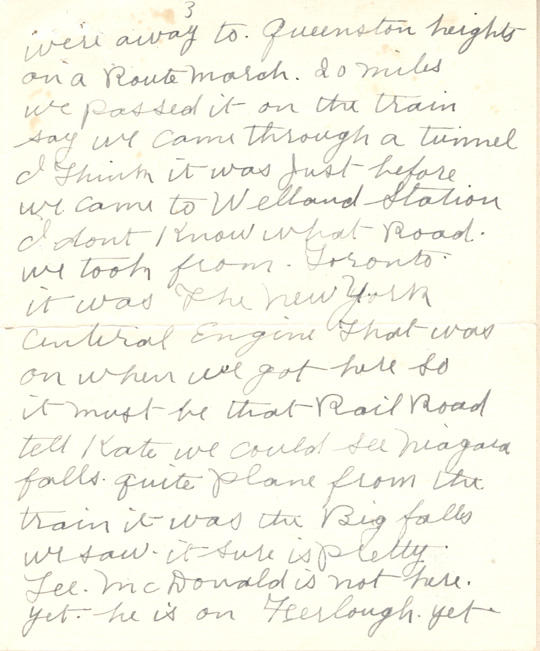 3
were away to. Queenston heights
on a Route march. 20 miles
we passed it on the train
say we came through a tunnel
I Think it was Just before
we came to Welland Station
I dont Know what Road.
we took from. Toronto.
it was The New York
Centeral Engine That was
on when we got here so
it must be that Rail Road
tell Kate we could see Niagara
falls. quite plane from the
train it was the Big falls
we saw. it sure is pretty.
Lee. McDonald is not here.
yet. he is on Feerlough. yet